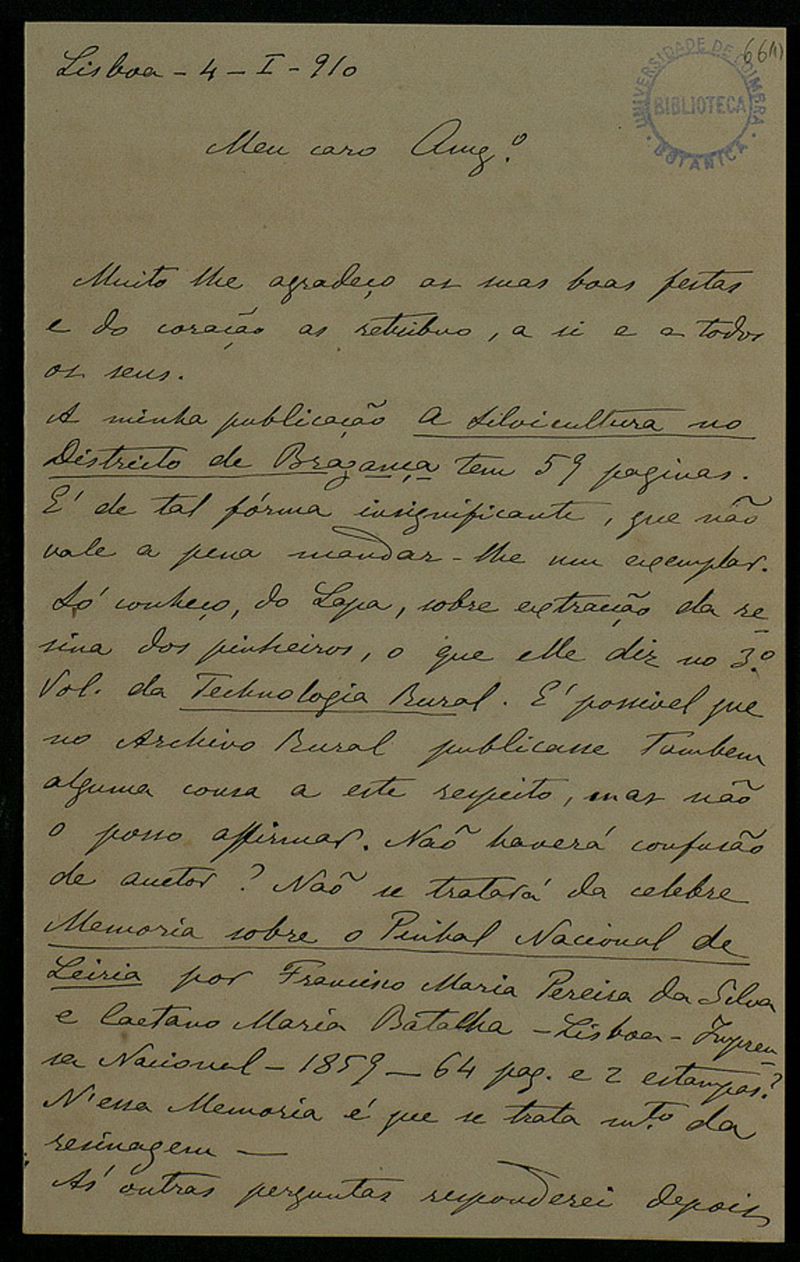 66(1)
UNIVERSIDADE DE COIMBRA
BIBLIOTECA
BOTANICA
Lisboa - 4 - I - 910
Meu caro Amg.º
Muito lhe agradeço as suas boas festas
e do coração as retribuo, a si e a todos
os seus.
A minha publicação A Silvicultura no
Districto de Bragança tem 59 paginas.
E' de tal fórma insignificante, que não
vale a pena mandar-lhe um exemplar.
Só conheço, do Lapa, sobre extracção da re-
sina dos pinheiros, o que elle diz no 3.º
Vol. da Technologia Rural. E' possivel que
no Archivo Rural publicasse tambem
alguma cousa a este respeito, mas não
o posso affirmar. Naõ haverá confusão
de auctor? Naõ se tratará da celebre
Memoria sobre o Pinhal Nacional de
Leiria por Francisco Maria Pereira da Silva
e Caetano Maria Batalha - Lisboa - Impren-
sa Nacional - 1859 - 64 pag. e 2 estampas?
N'essa Memoria é que se trata mt.º da
resinagem —
Ás outras perguntas responderei depois